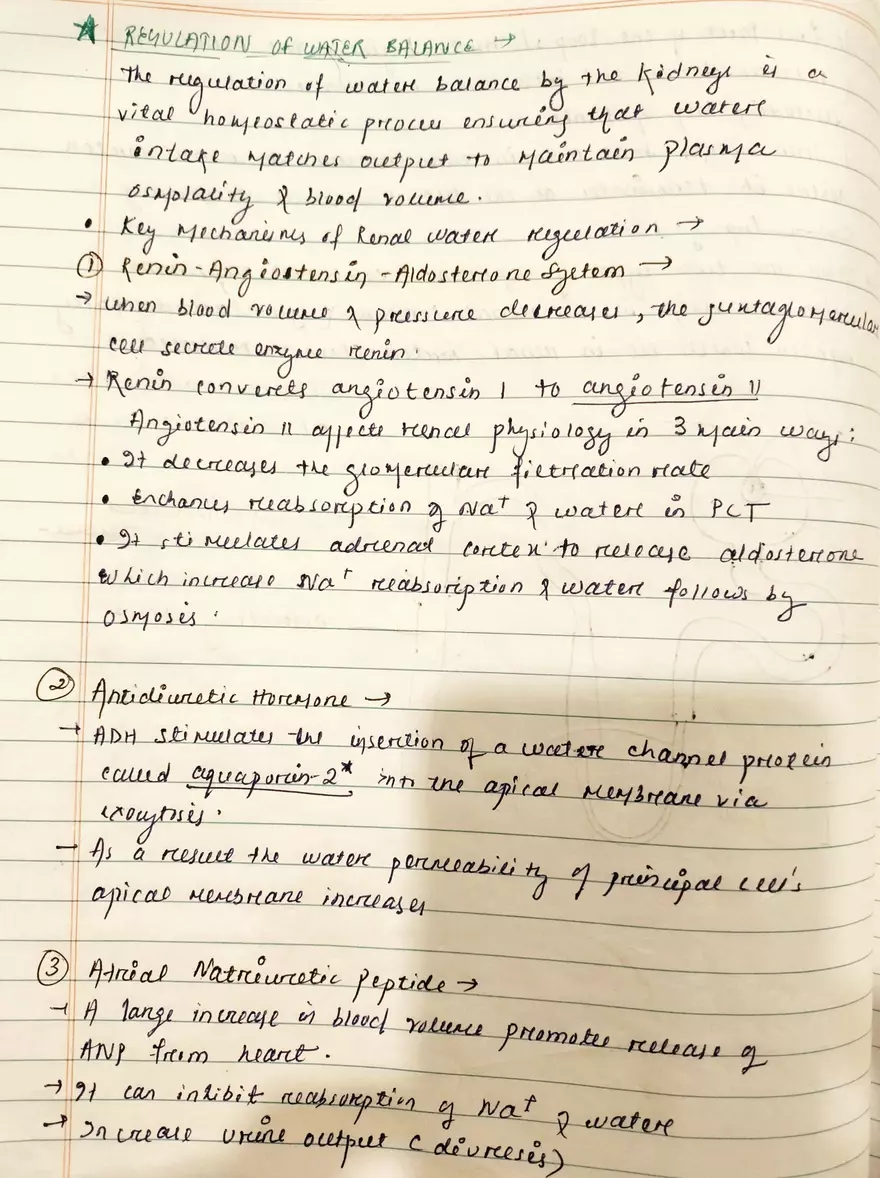 ★ REGULATION OF WATER BALANCE →
The regulation of water balance by the kidneys is a
vital homeostatic process ensuring that water
intake matches output to maintain plasma
osmolality & blood volume.
• Key Mechanisms of Renal water regulation →
① Renin-Angiostensin-Aldosterone System →
→ When blood volume & pressure decreases, the juxtaglomerular
cell secrete enzyme renin.
→ Renin converts angiotensin I to angiotensin II
Angiotensin II affects renal physiology in 3 main ways:
• It decreases the glomerular filtration rate
• Enchances reabsorption of Na⁺ & water in PCT
• It stimulates adrenal cortex to release aldosterone
which increase Na⁺ reabsorption & water follows by
osmosis.
② Antidiuretic Hormone →
→ ADH stimulates the insertion of a water channel protein
called aquaporin-2* into the apical membrane via
exocytosis.
→ As a result the water permeability of principal cell's
apical membrane increases
③ Atrial Natriuretic peptide →
→ A large increase in blood volume promotes release of
ANP from heart.
→ It can inhibit reabsorption of Na⁺ & water
→ Increase urine output (diureses)